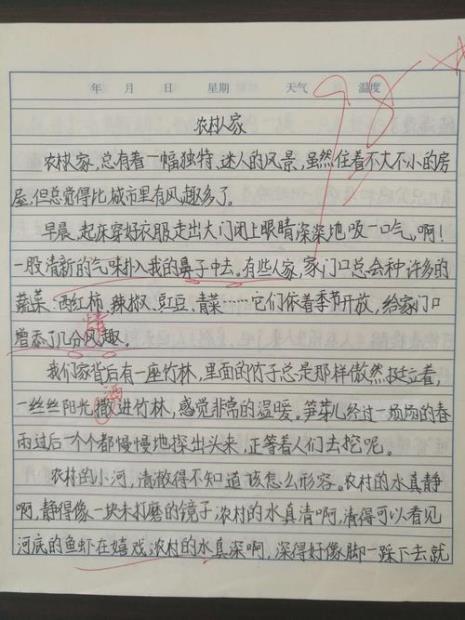 年 月 日 星期 天气 温度
98
农村人家
农村人家,总有着一幅独特、迷人的风景,虽然住着不大不小的房
屋,但总觉得比城市里有风趣多了。
早晨,起床穿好衣服走出大门闭上眼睛深深地吸一口气。啊!
一股清新的气味扑入我的鼻子中去。有些人家,家门口总会种许多的
蔬菜:西红柿、辣椒、豇豆、青菜……它们依着季节开放,给家门口
情
曾添了几分风趣。
我们家背后有一座竹林,里面的竹子总是那样傲然挺立着,
洒
一丝丝阳光撒进竹林,感觉非常的温暖。笋芽儿经过一场场的春
雨过后一个个都慢慢地探出头来,正等着人们去挖呢。
农村的小河,清澈得不知道该怎么形容。农村的水真静
啊,静得像一块未打磨的镜子农村的水真清啊,清得可以看见
河底的鱼虾在嬉戏农村的水真深啊,深得好像脚一踩下去就